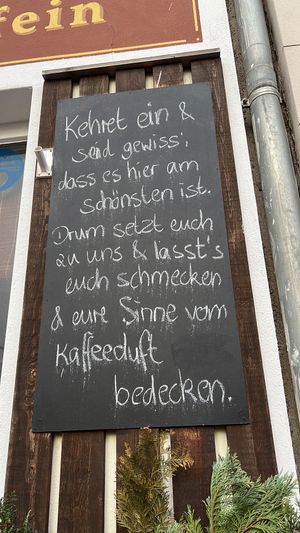 fein
Kehret ein &
seid gewiss',
dass es hier am
schönsten ist.
Drum setzt euch
zu uns & lasst's
euch schmecken
& eure Sinne vom
Kaffeeduft
bedecken.